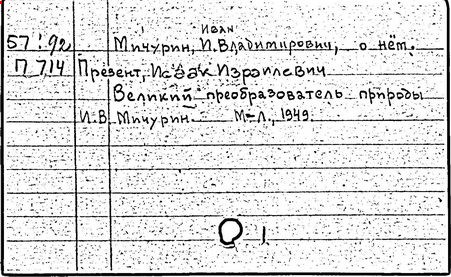 Иван
57:92 Мичурин, И. Владимирович, о нём.
П 714 Презент, Исаак Израилевич
Великий преобразователь природы
И.В. Мичурин. М-Л., 1949.
1